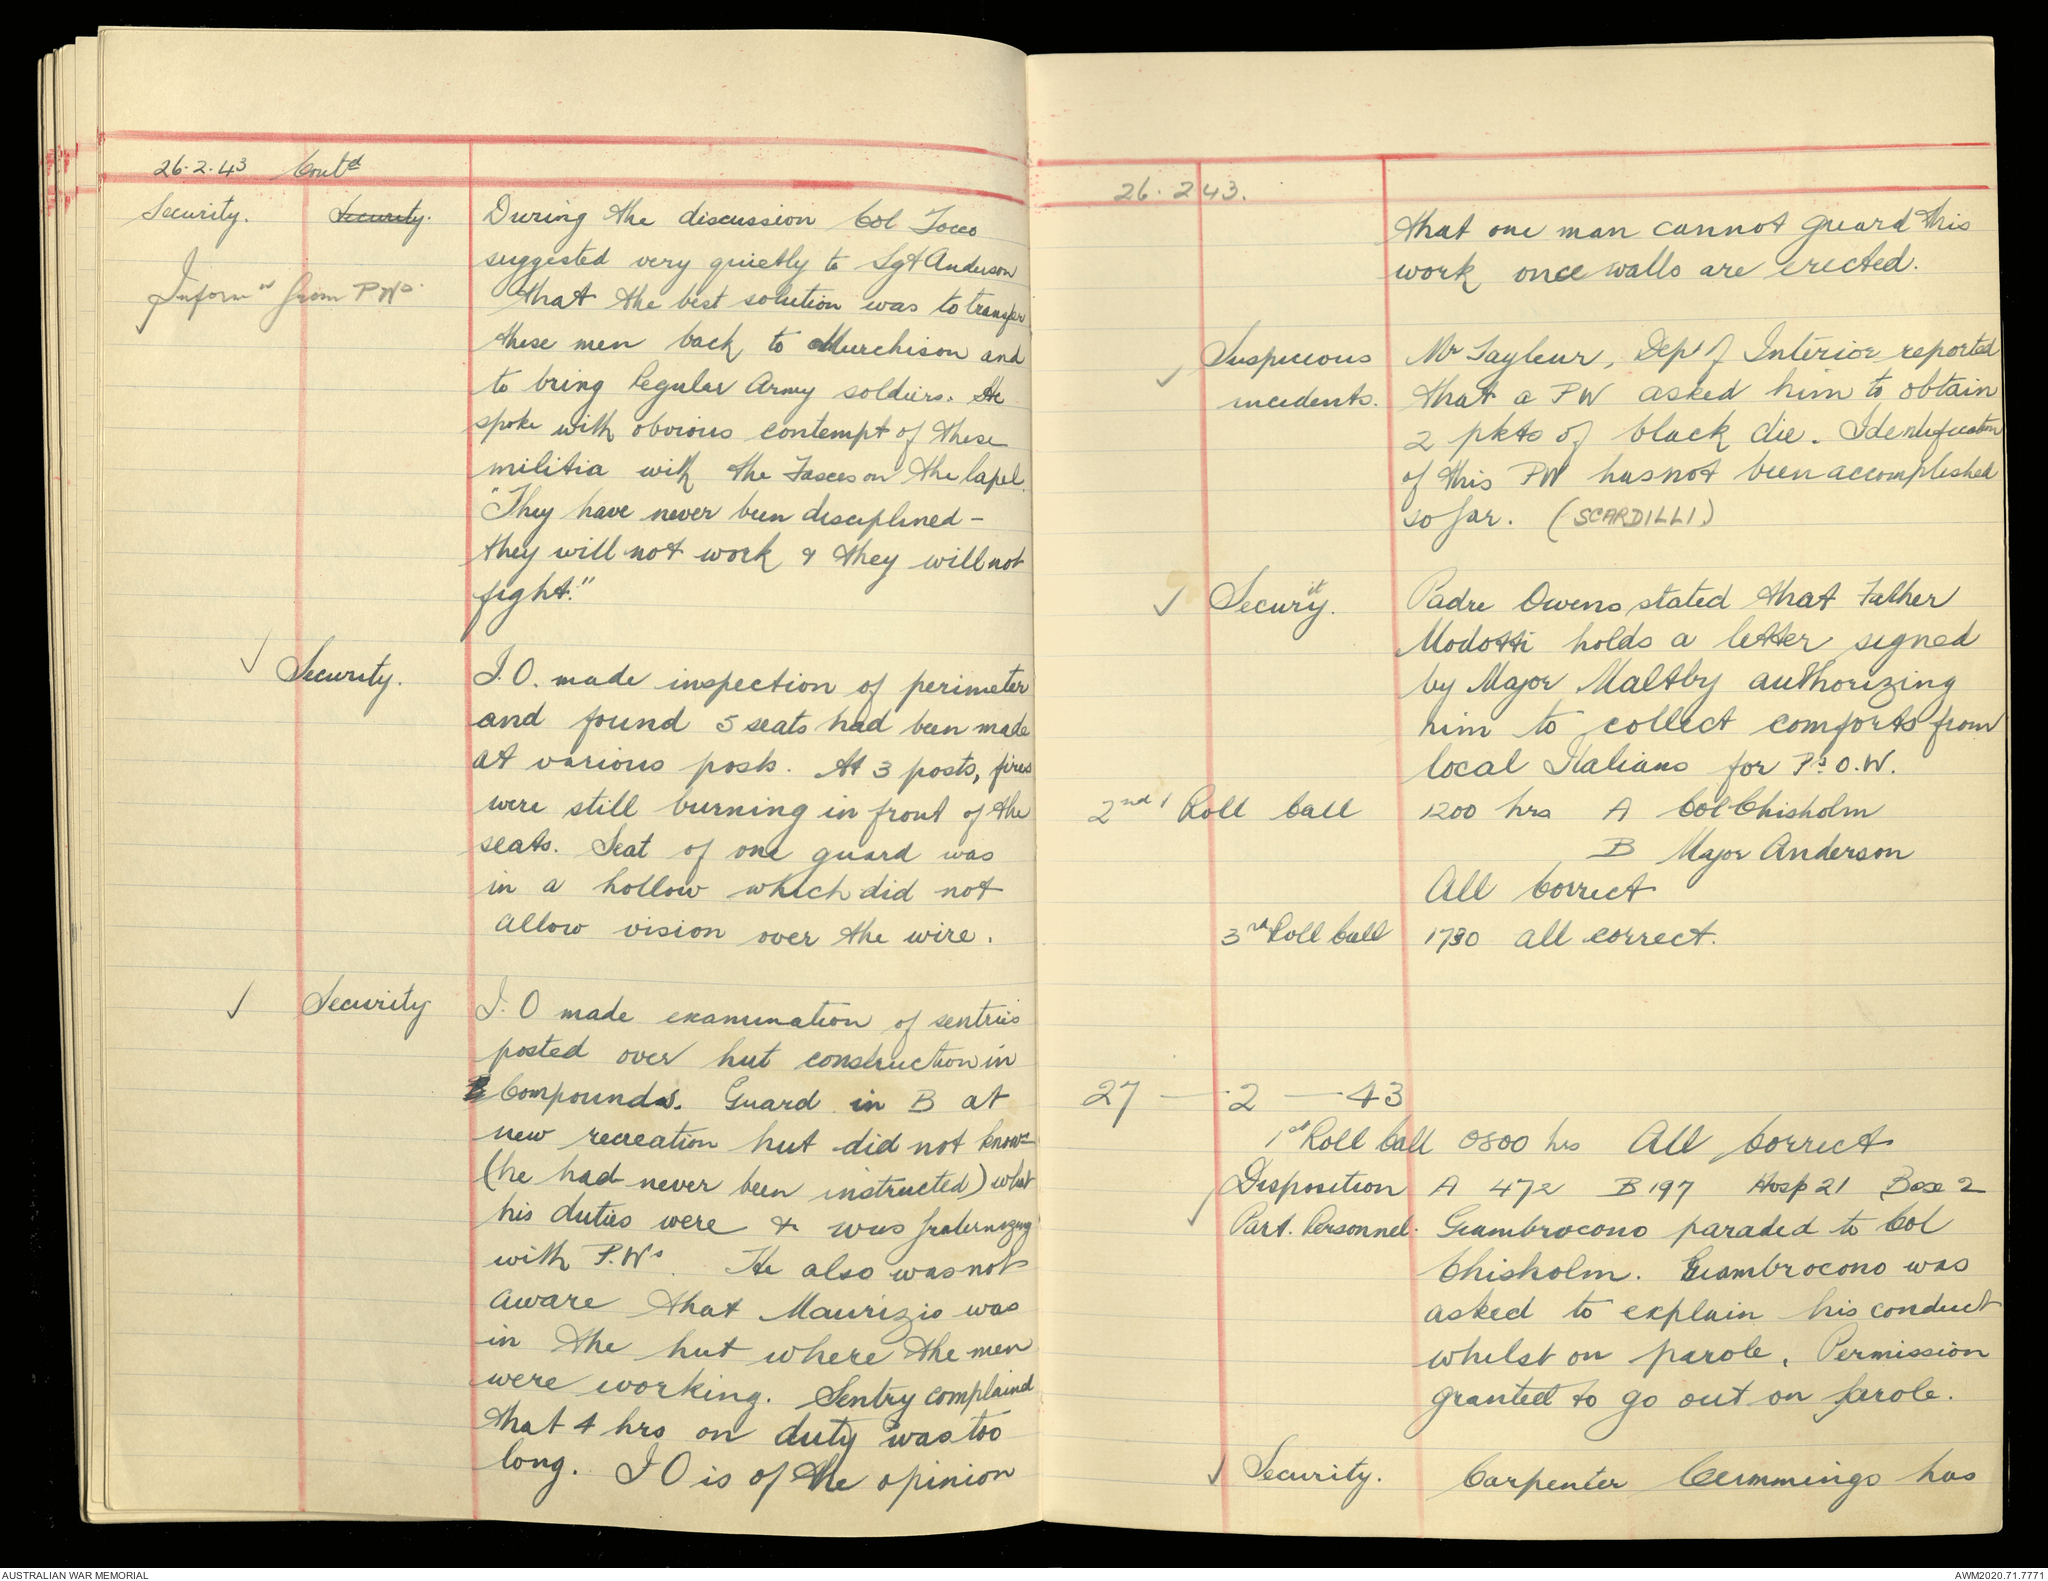 26.2.43 Contd
Security. Security. During the discussion Col Tocco
suggested very quietly to Sgt Anderson
Informn from PWs. that the best solution was to transfer
these men back to Murchison and
to bring Regular Army soldiers. He
spoke with obvious contempt of these
militia with the Fasces on the lapel.
"They have never been disciplined -
they will not work & they will not
fight."
✓ Security. I.O. made inspection of perimeter
and found 5 seats had been made
at various posts. At 3 posts, fires
were still burning in front of the
seats. Seat of one guard was
in a hollow which did not
allow vision over the wire.
✓ Security I.O made examination of sentries
posted over hut construction in
Compounds. Guard in B at
new recreation hut did not know
(he had never been instructed) what
his duties were & was fraternizing
with P.Ws. He also was not
aware that Maurizio was
in the hut where the men
were working. Sentry complained
that 4 hrs on duty was too
long. I O is of the opinion
26.2.43.
that one man cannot guard this
work once walls are erected.
✓ Suspicious Mr Tayleur, Dept of Interior reported
incidents. that a PW asked him to obtain
2 pkts of black die. Identification
of this PW has not been accomplished
so far. (SCARDILLI)
✓ Security. Padre Owens stated that Father
Modotti holds a letter signed
by Major Maltby authorizing
him to collect comforts from
local Italians for Ps.O.W.
2nd Roll Call 1200 hrs A Col Chisholm
B Major Anderson
All Correct
3rd Roll Call 1730 all correct.
27 - 2 - 43
1st Roll Call 0800 hrs All Correct
✓ Disposition A 472 B 197 Hosp 21 Base 2
Part. Personnel. Giambrocono paraded to Col
Chisholm. Giambrocono was
asked to explain his conduct
whilst on parole. Permission
granted to go out on parole.
✓ Security. Carpenter Cummings has
AUSTRALIAN WAR MEMORIAL
AWM2020.71.7771